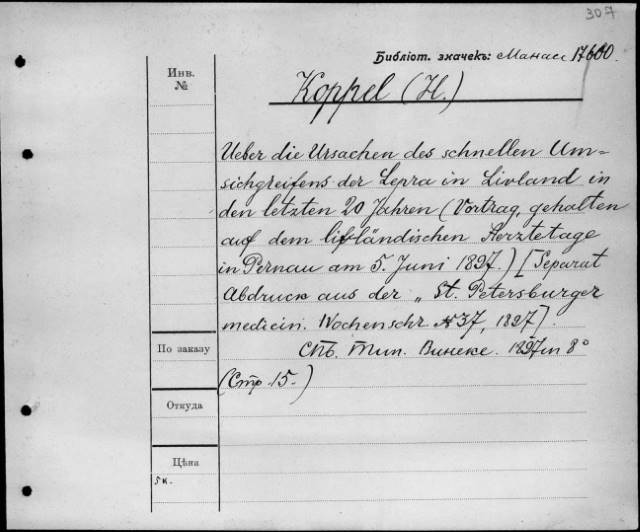 307
Библіот. значекъ: Манас 17600.
Инв.
№
Koppel (H.)
Ueber die Ursachen des schnellen Um-
sichgreifens der Lepra in Livland in
den letzten 20 Jahren (Vortrag, gehalten
auf dem livländischen Aerztetage
in Pernau am 5. Juni 1897.) [Separat
Abdruck aus der „St. Petersburger
medicin. Wochenschr № 37, 1897].
По заказу
Спб. Тип. Винеке. 1897 in 8°
(Стр. 15.)
Откуда
Цѣна
5к.